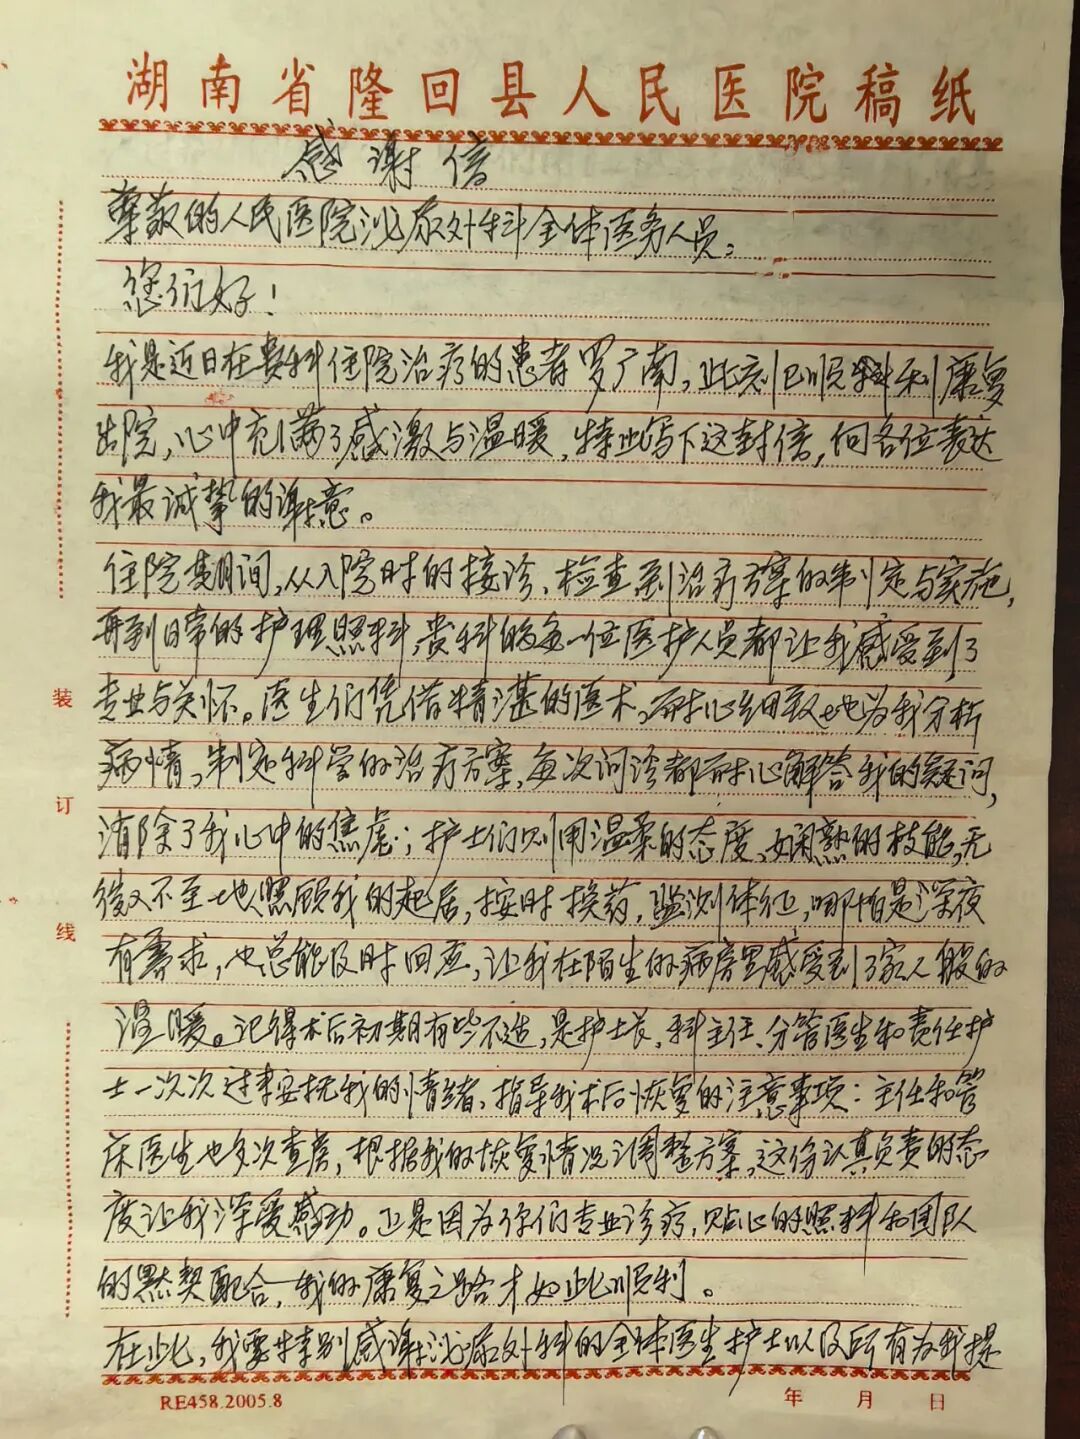 湖南省隆回县人民医院稿纸
感谢信
尊敬的人民医院泌尿外科全体医务人员：
您们好！
我是近日在贵科住院治疗的患者罗广南，此刻已顺利康复
出院，心中充满了感激与温暖，特此写下这封信，向各位表达
我最诚挚的谢意。
住院期间，从入院时的接诊、检查到治疗方案的制定与实施，
再到日常的护理照料，贵科的每一位医护人员都让我感受到了
专业与关怀。医生们凭借精湛的医术，耐心细致地为我分析
病情，制定科学的治疗方案，每次问诊都耐心解答我的疑问，
消除了我心中的焦虑；护士们则用温柔的态度、娴熟的技能，无
微不至地照顾我的起居，按时换药，监测体征，哪怕是深夜
有需求，也总能及时回应，让我在陌生的病房里感受到了家人般的
温暖。记得术后初期有些不适，是护士长，科主任、分管医生和责任护
士一次次过来安抚我的情绪，指导我术后恢复的注意事项：主任和管
床医生也多次查房，根据我的恢复情况调整方案，这份认真负责的态
度让我深受感动。正是因为你们专业诊疗，贴心的照料和团队
的默契配合，我的康复之路才如此顺利。
在此，我要特别感谢泌尿外科的全体医生护士以及所有为我提
装
订
线
RE458.2005.8 年 月 日